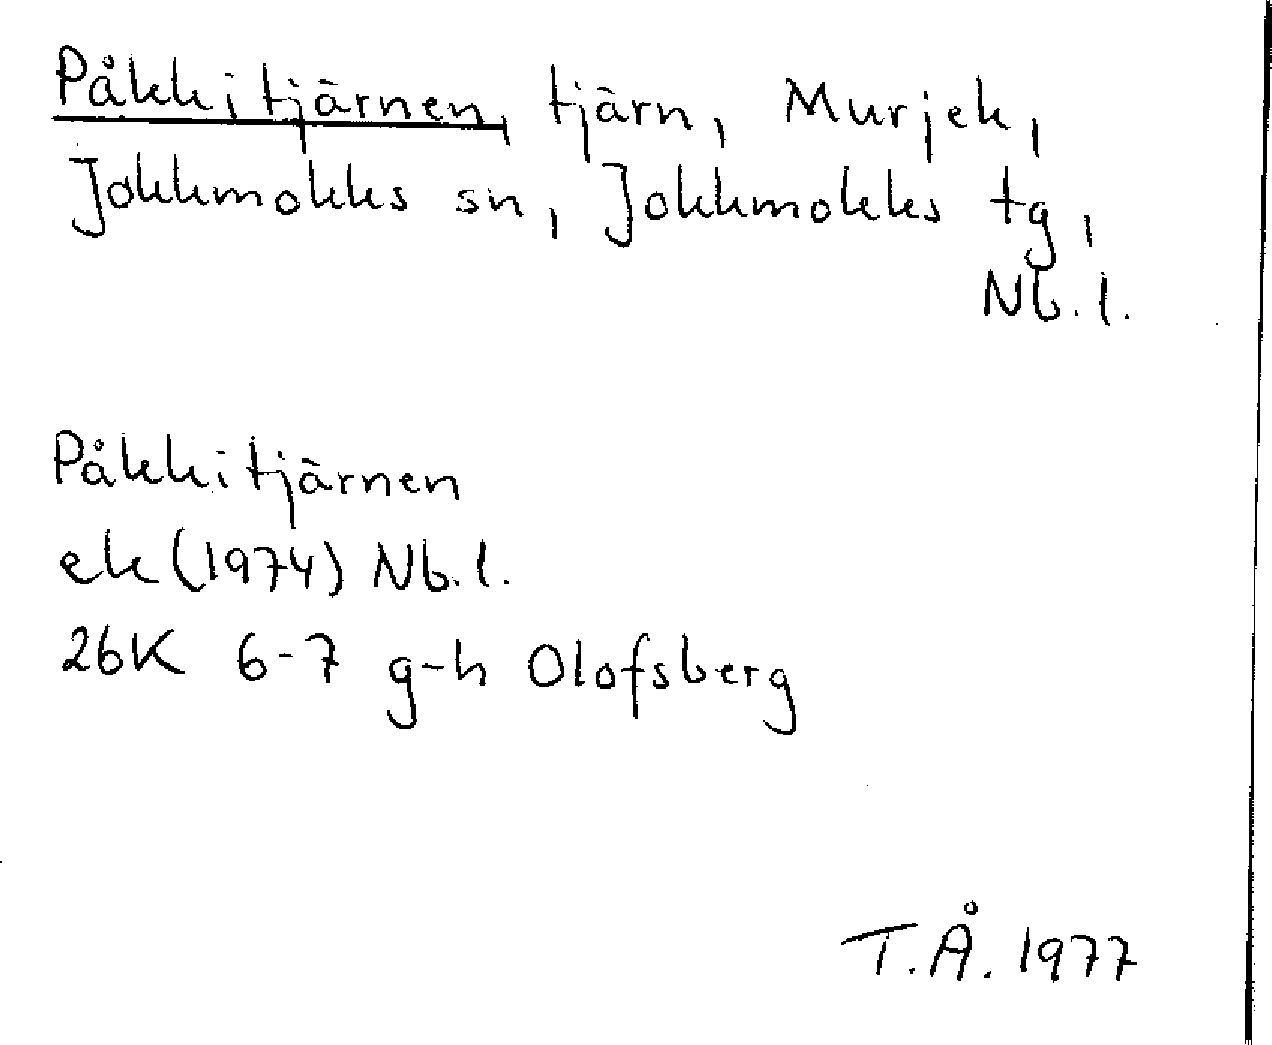 Påkkitjärnen, tjärn, Murjek,
Jokkmokks sn, Jokkmokks tg,
Nb. l.
Påkkitjärnen
ek (1974) Nb. l.
26K 6-7 g-h Olofsberg
T.Å. 1977